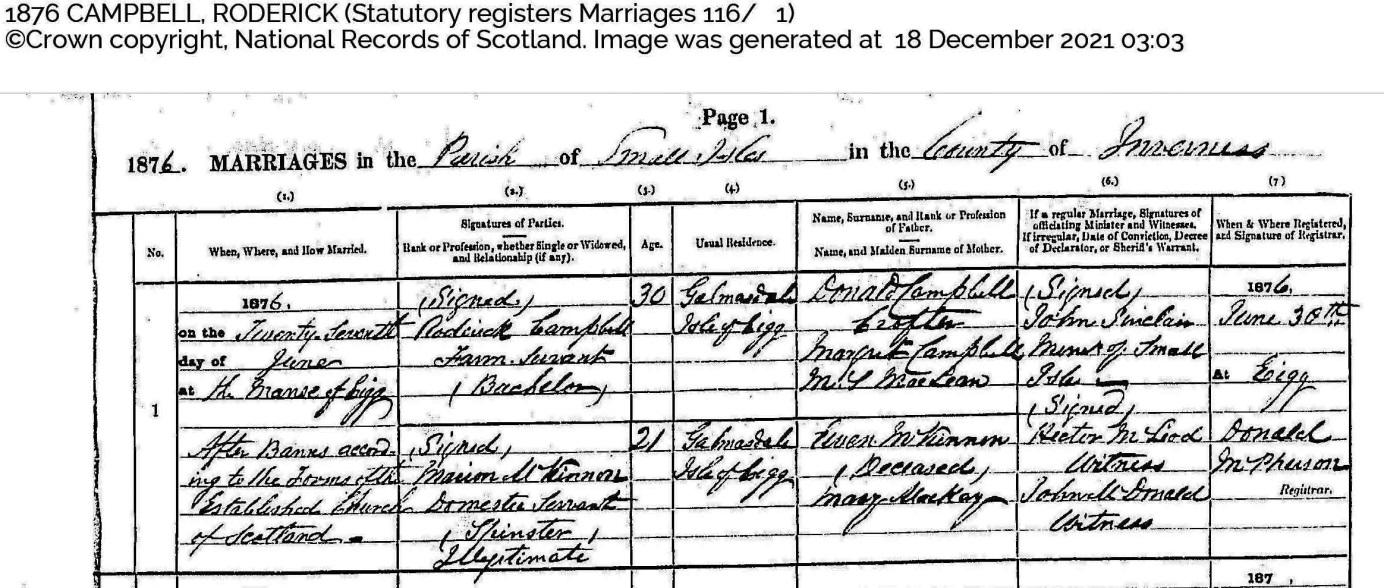 1876 CAMPBELL, RODERICK (Statutory registers Marriages 116/ 1)
©Crown copyright, National Records of Scotland. Image was generated at 18 December 2021 03:03
Page 1.
1876. MARRIAGES in the Parish of Small Isles in the County of Inverness
(1.) (2.) (3.) (4.) (5.) (6.) (7)
No.
When, Where, and How Married.
Signatures of Parties.
Rank or Profession, whether Single or Widowed,
and Relationship (if any).
Age.
Usual Residence.
Name, Surname, and Rank or Profession
of Father.
Name, and Maiden Surname of Mother.
If a regular Marriage, Signatures of
officiating Minister and Witnesses.
If irregular, Date of Conviction, Decree
of Declarator, or Sheriff's Warrant.
When & Where Registered,
and Signature of Registrar.
1
1876.
on the Twenty-Seventh
day of June
at the Manse of Eigg
After Banns accord-
ing to the Forms of the
Established Church
of Scotland
(Signed)
Roderick Campbell
Farm Servant
(Bachelor)
(Signed)
Marion McKinnon
Domestic Servant
(Spinster)
Illegitimate
30
21
Galmasdale
Isle of Eigg
Galmasdale
Isle of Eigg
Donald Campbell
Crofter
Margret Campbell
M.S MacLean
Ewen McKinnon
(Deceased)
Mary MacKay
(Signed)
John Sinclair
Minr of Small
Isles
(Signed)
Hector McLeod
Witness
John McDonald
Witness
1876,
June 30th
At Eigg
Donald
McPherson
Registrar.
187 ,